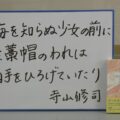 海を知らぬ少女の前に
麦藁帽のわれは
両手をひろげていたり
寺山修司